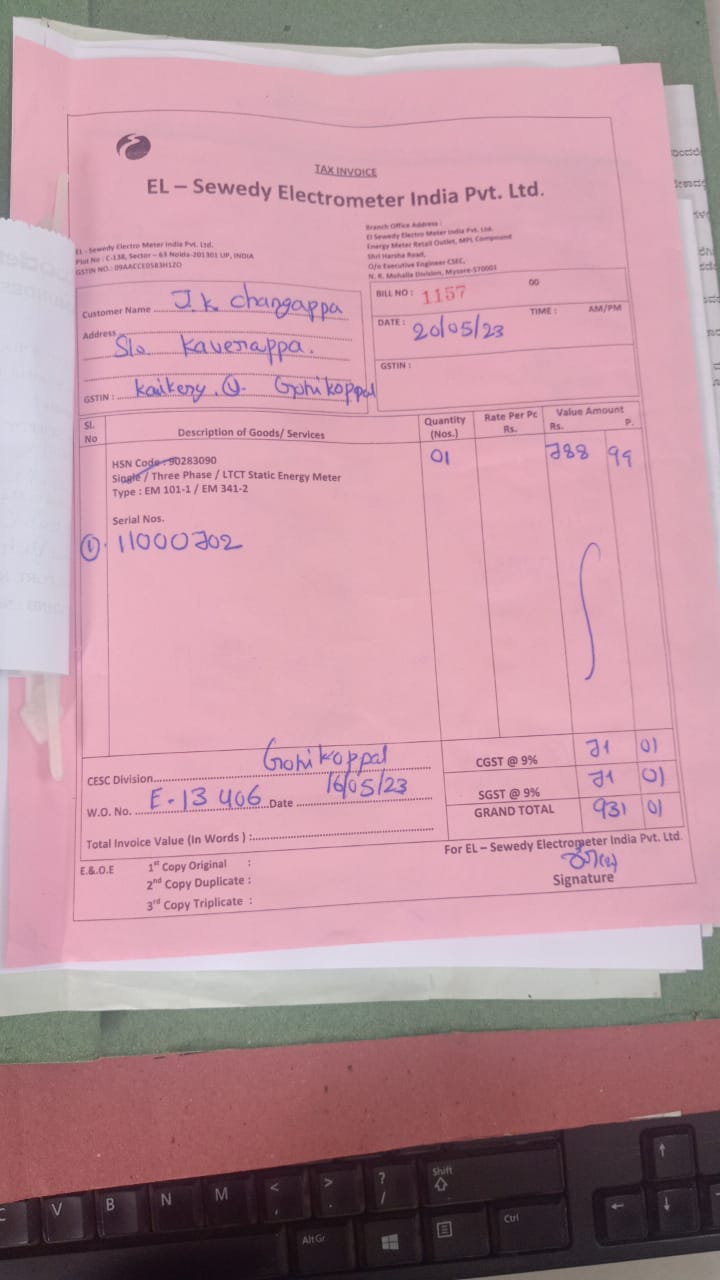 TAX INVOICE
EL – Sewedy Electrometer India Pvt. Ltd.
EL - Sewedy Electro Meter India Pvt. Ltd.
Plot No : C-138, Sector – 63 Noida-201301 UP, INDIA
GSTIN NO.: 09AACCE0583H1ZO
Branch Office Address :
El Sewedy Electro Meter India Pvt. Ltd.
Energy Meter Retail Outlet, MPL Compound
Shri Harsha Road,
O/o Executive Engineer CSEC,
N. R. Mohalla Division, Mysore-570001
Customer Name J.K Changappa
Address
S/o Kaverappa.
GSTIN : Kaikery. Gonikoppal
BILL NO : 1157 00
DATE : 20/05/23 TIME : AM/PM
GSTIN :
Sl. No Description of Goods/ Services Quantity (Nos.) Rate Per Pc Rs. Value Amount Rs. P.
HSN Code : 90283090 01 788 99
Single / Three Phase / LTCT Static Energy Meter
Type : EM 101-1 / EM 341-2
Serial Nos.
① 11000702
CESC Division Gonikoppal
W.O. No. E-13406 Date 16/05/23
Total Invoice Value (In Words ) :
CGST @ 9% 71 01
SGST @ 9% 71 01
GRAND TOTAL 931 01
For EL – Sewedy Electrometer India Pvt. Ltd.
Signature
E.& O.E 1st Copy Original :
2nd Copy Duplicate :
3rd Copy Triplicate :
C V B N M < , > . ? / Shift
Alt Gr Ctrl